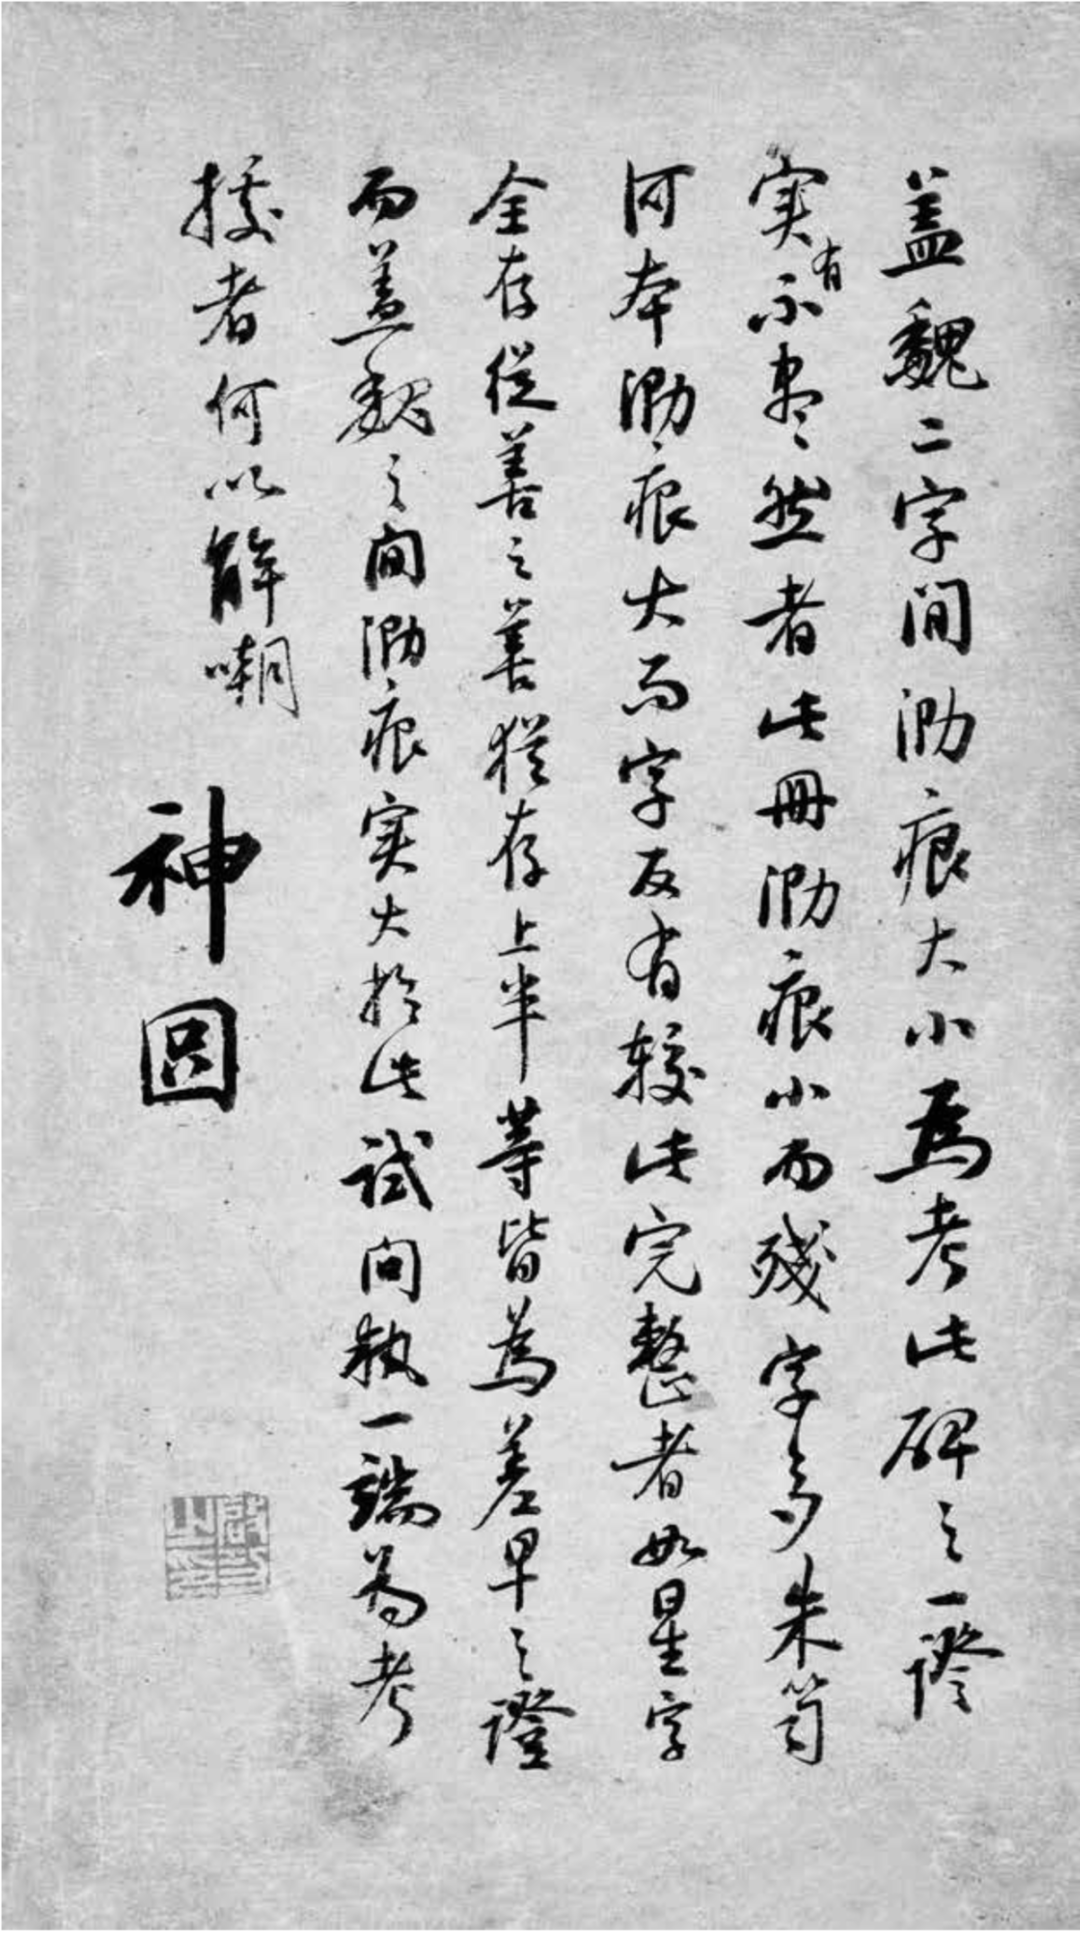 蓋魏二字間泐痕大小為考此碑之一證
实有不盡然者此冊泐痕小而殘字多朱筍
河本泐痕大而字反有較此完整者如星字
全存從善之善猶存上半等皆為差早之證
而蓋魏之間泐痕实大於此試问執一端為考
據者何以解嘲
神圆